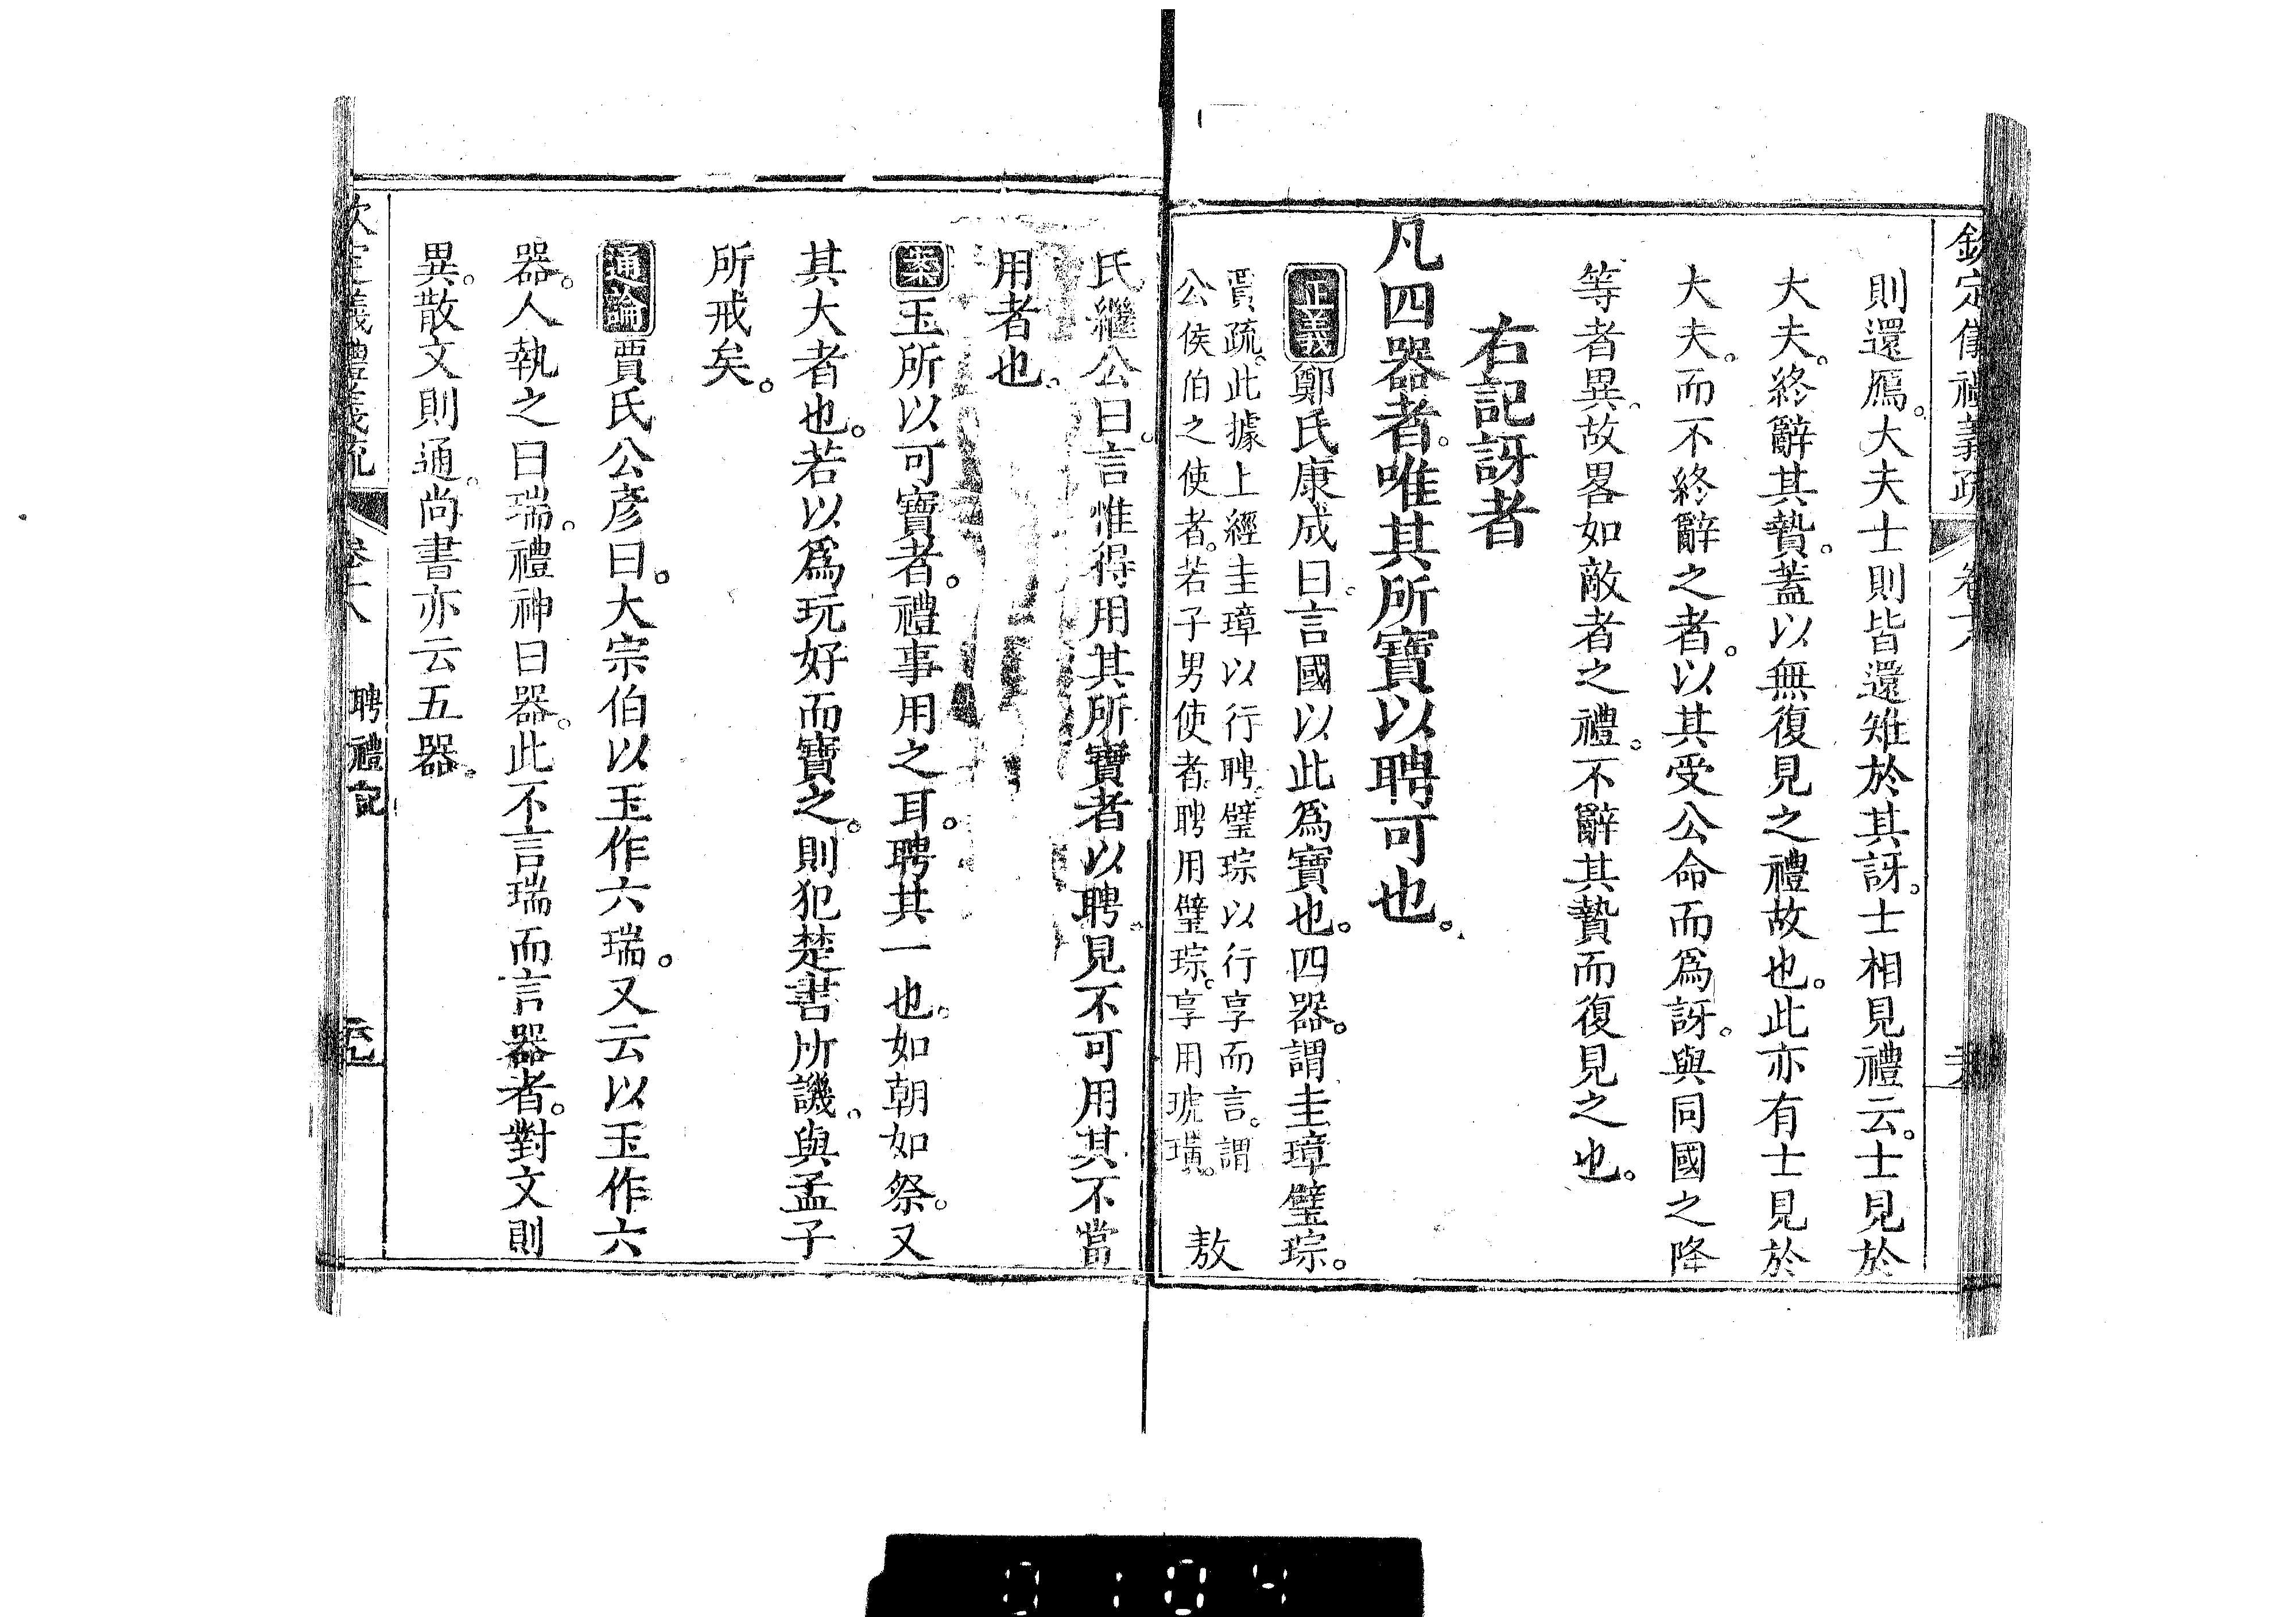 欽定儀禮義疏 卷十八
則還鴈。大夫士則皆還雉於其訝。士相見禮云。士見於
大夫。終辭其贄。蓋以無復見之禮故也。此亦有士見於
大夫。而不終辭之者。以其受公命而爲訝。與同國之降
等者異。故畧如敵者之禮。不辭其贄而復見之也。
右記訝者
凡四器者。唯其所寶以聘可也。
正義鄭氏康成曰。言國以此爲寶也。四器。謂圭璋璧琮。
賈疏。此據上經圭璋以行聘。璧琮以行享而言。謂
公侯伯之使者。若子男使者。聘用璧琮。享用琥璜。
敖
氏繼公曰。言惟得用其所寶者以聘。見不可用其不當
用者也。
案玉所以可寶者。禮事用之耳。聘其一也。如朝如祭。又
其大者也。若以爲玩好而寶之。則犯楚書所譏。與孟子
所戒矣。
通論賈氏公彥曰。大宗伯以玉作六瑞。又云以玉作六
器。人執之曰瑞。禮神曰器。此不言瑞而言器者。對文則
異。散文則通。尚書亦云五器。
欽定儀禮義疏 卷十八 聘禮記
0104